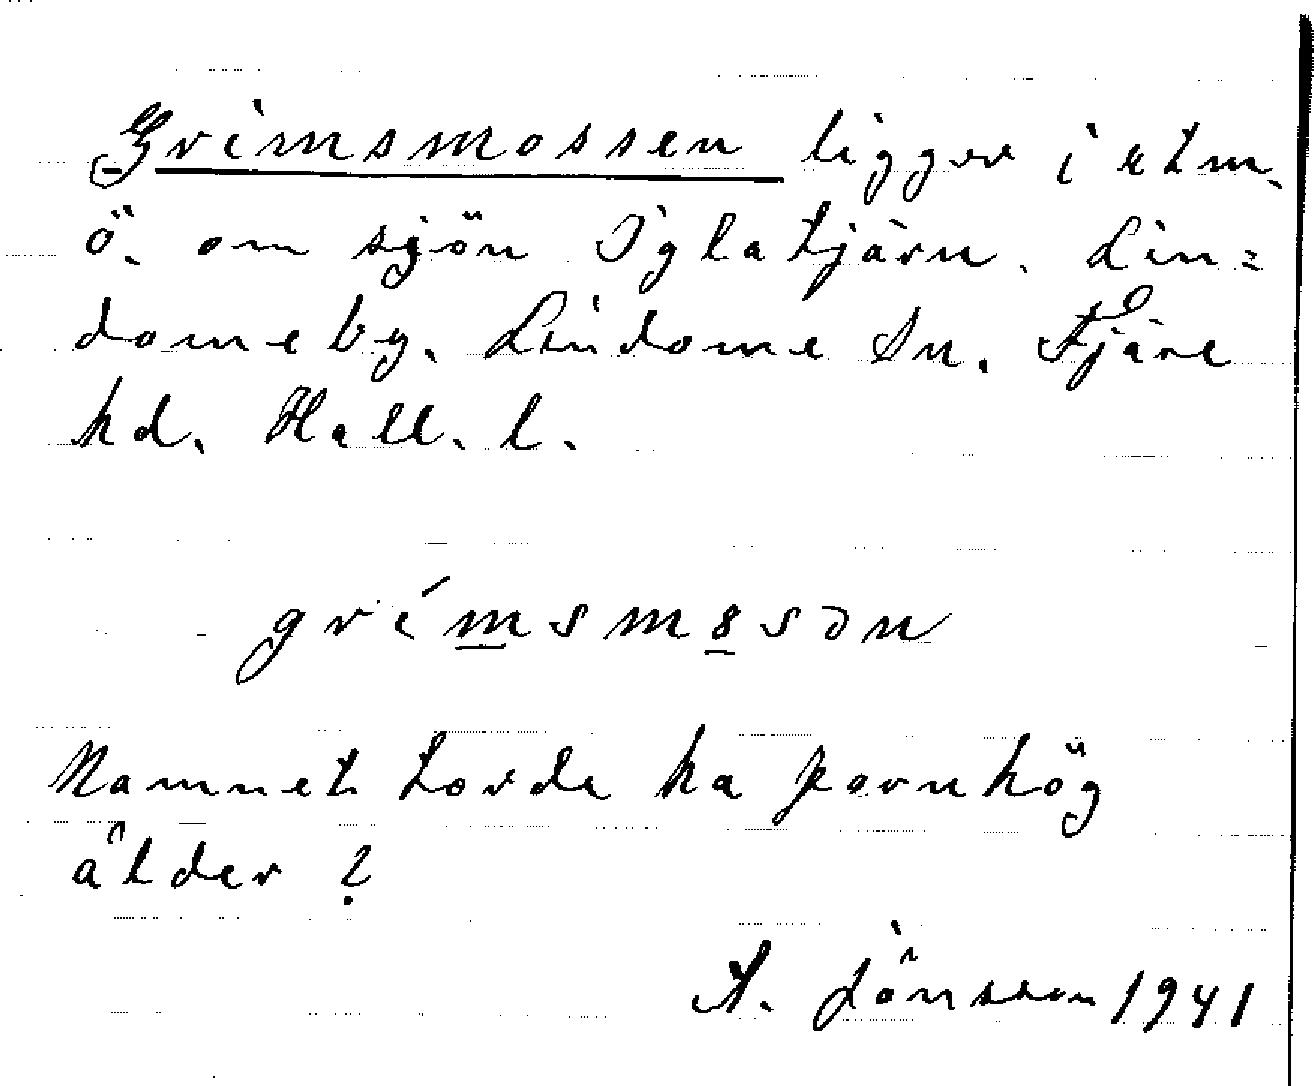 Grimsmossen ligger i utm.
ö. om sjön Iglatjärn. Lin=
dome by. Lindome Sn. Fjäre
hd. Hall. l.
grímsmosən
Namnet torde ha fornhög
ålder?
A. Jönsson 1941